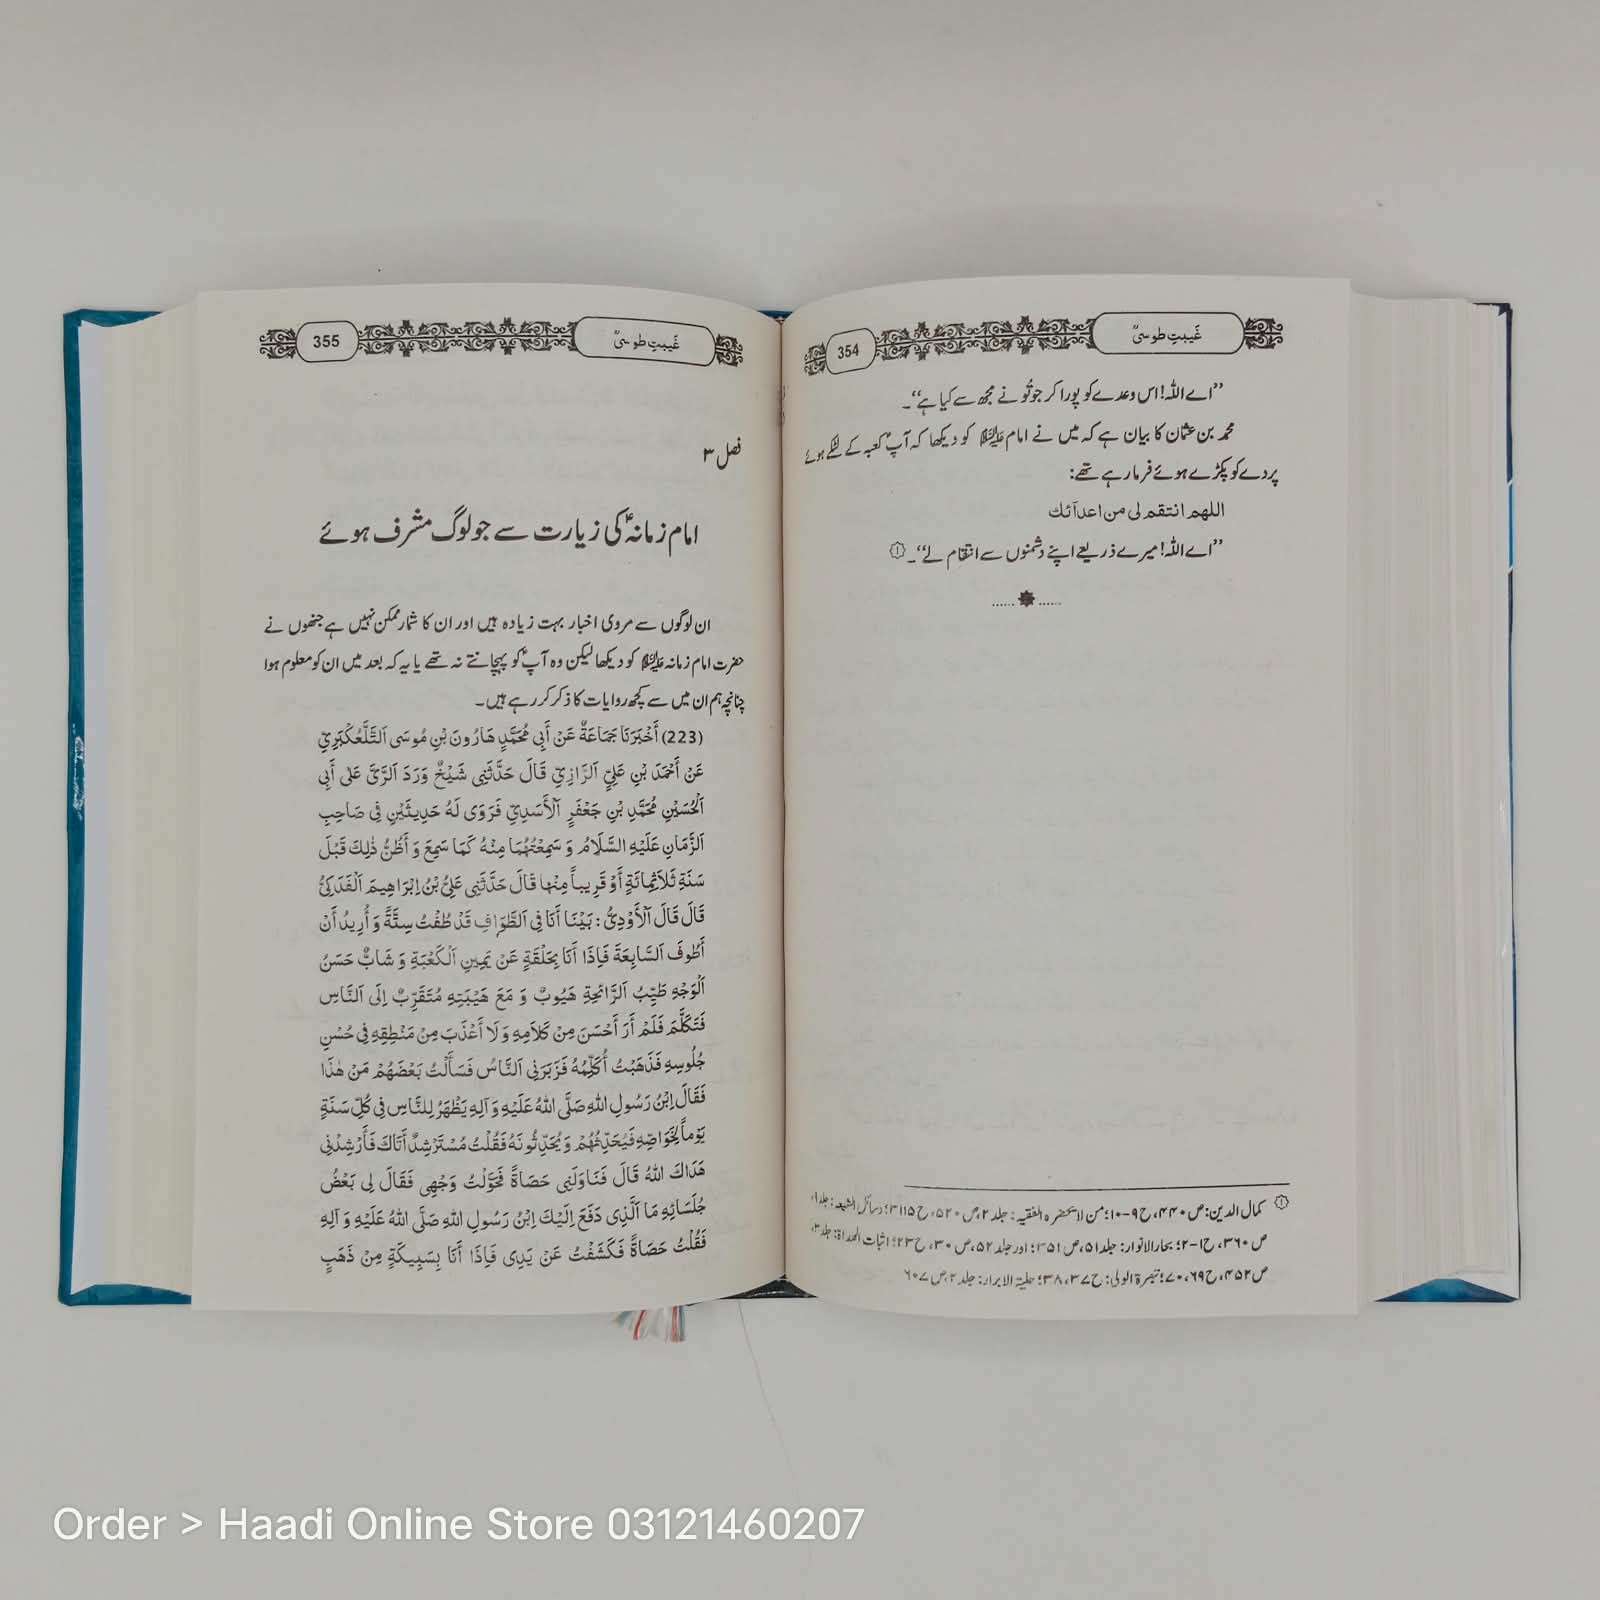 354
غَیبتِ طوسیؒ
”اے اللہ! اس وعدے کو پورا کر جو تُو نے مجھ سے کیا ہے“۔
محمد بن عثمان کا بیان ہے کہ میں نے امام علیہ السلام کو دیکھا کہ آپؑ کعبہ کے لٹکے ہوئے
پردے کو پکڑے ہوئے فرما رہے تھے:
اللھم انتقم لی من اعدآئک
”اے اللہ! میرے ذریعے اپنے دشمنوں سے انتقام لے“۔ ①
① کمال الدین: ص ۴۴۰، ح ۹-۱۰؛ من لا یحضرہ الفقیہ: جلد ۲، ص ۵۲۰، ح ۳۱۱۵؛ وسائل الشیعہ: جلد ۹،
ص ۳۶۰، ح ۱-۲؛ بحار الانوار: جلد ۵۱، ص ۳۵۱؛ اور جلد ۵۲، ص ۳۰، ح ۲۳؛ اثبات الھداۃ: جلد ۳،
ص ۴۵۲، ح ۶۹، ۷۰؛ تبصرۃ الولی: ح ۳۷، ۳۸؛ حلیۃ الابرار: جلد ۲، ص ۶۰۷
355
غَیبتِ طوسیؒ
فصل ۳
امام زمانہؑ کی زیارت سے جو لوگ مشرف ہوئے
ان لوگوں سے مروی اخبار بہت زیادہ ہیں اور ان کا شمار ممکن نہیں ہے جنھوں نے
حضرت امام زمانہ علیہ السلام کو دیکھا لیکن وہ آپؑ کو پہچانتے نہ تھے یا یہ کہ بعد میں ان کو معلوم ہوا
چنانچہ ہم ان میں سے کچھ روایات کا ذکر کر رہے ہیں۔
(223) أَخْبَرَنَا جَمَاعَةٌ عَنْ أَبِي مُحَمَّدٍ هَارُونَ بْنِ مُوسَى اَلتَّلَّعُكْبَرِيِّ
عَنْ أَحْمَدَ بْنِ عَلِيٍّ اَلرَّازِيِّ قَالَ حَدَّثَنِي شَيْخٌ وَرَدَ اَلرَّيَّ عَلَى أَبِي
اَلْحُسَيْنِ مُحَمَّدِ بْنِ جَعْفَرٍ اَلْأَسَدِيِّ فَرَوَى لَهُ حَدِيثَيْنِ فِي صَاحِبِ
اَلزَّمَانِ عَلَيْهِ السَّلَامُ وَ سَمِعْتُهُمَا مِنْهُ كَمَا سَمِعَ وَ أَظُنُّ ذٰلِكَ قَبْلَ
سَنَةِ ثَلَاثِمِائَةٍ أَوْ قَرِيباً مِنْهَا قَالَ حَدَّثَنِي عَلِيُّ بْنُ إِبْرَاهِيمَ اَلْفَدَكِيُّ
قَالَ قَالَ اَلْأَوْدِيُّ: بَيْنَا أَنَا فِي اَلطَّوَافِ قَدْ طُفْتُ سِتَّةً وَ أُرِيدُ أَنْ
أَطُوفَ اَلسَّابِعَةَ فَإِذَا أَنَا بِحَلْقَةٍ عَنْ يَمِينِ اَلْكَعْبَةِ وَ شَابٌّ حَسَنُ
اَلْوَجْهِ طَيِّبُ اَلرَّائِحَةِ هَيُوبٌ وَ مَعَ هَيْبَتِهِ مُتَقَرِّبٌ إِلَى اَلنَّاسِ
فَتَكَلَّمَ فَلَمْ أَرَ أَحْسَنَ مِنْ كَلَامِهِ وَ لَا أَعْذَبَ مِنْ مَنْطِقِهِ فِي حُسْنِ
جُلُوسِهِ فَذَهَبْتُ أُكَلِّمُهُ فَزَبَرَنِي اَلنَّاسُ فَسَأَلْتُ بَعْضَهُمْ مَنْ هٰذَا
فَقَالَ اِبْنُ رَسُولِ اللهِ صَلَّى اللهُ عَلَيْهِ وَ آلِهِ يَظْهَرُ لِلنَّاسِ فِي كُلِّ سَنَةٍ
يَوْماً لِخَوَاصِّهِ فَيُحَدِّثُهُمْ وَ يُحَدِّثُونَهُ فَقُلْتُ مُسْتَرْشِدٌ أَتَاكَ فَأَرْشِدْنِي
هَدَاكَ اللهُ قَالَ فَنَاوَلَنِي حَصَاةً فَحَوَّلْتُ وَجْهِي فَقَالَ لِي بَعْضُ
جُلَسَائِهِ مَا الَّذِي دَفَعَ إِلَيْكَ اِبْنُ رَسُولِ اللهِ صَلَّى اللهُ عَلَيْهِ وَ آلِهِ
فَقُلْتُ حَصَاةً فَكَشَفْتُ عَنْ يَدِي فَإِذَا أَنَا بِسَبِيكَةٍ مِنْ ذَهَبٍ
Order > Haadi Online Store 03121460207